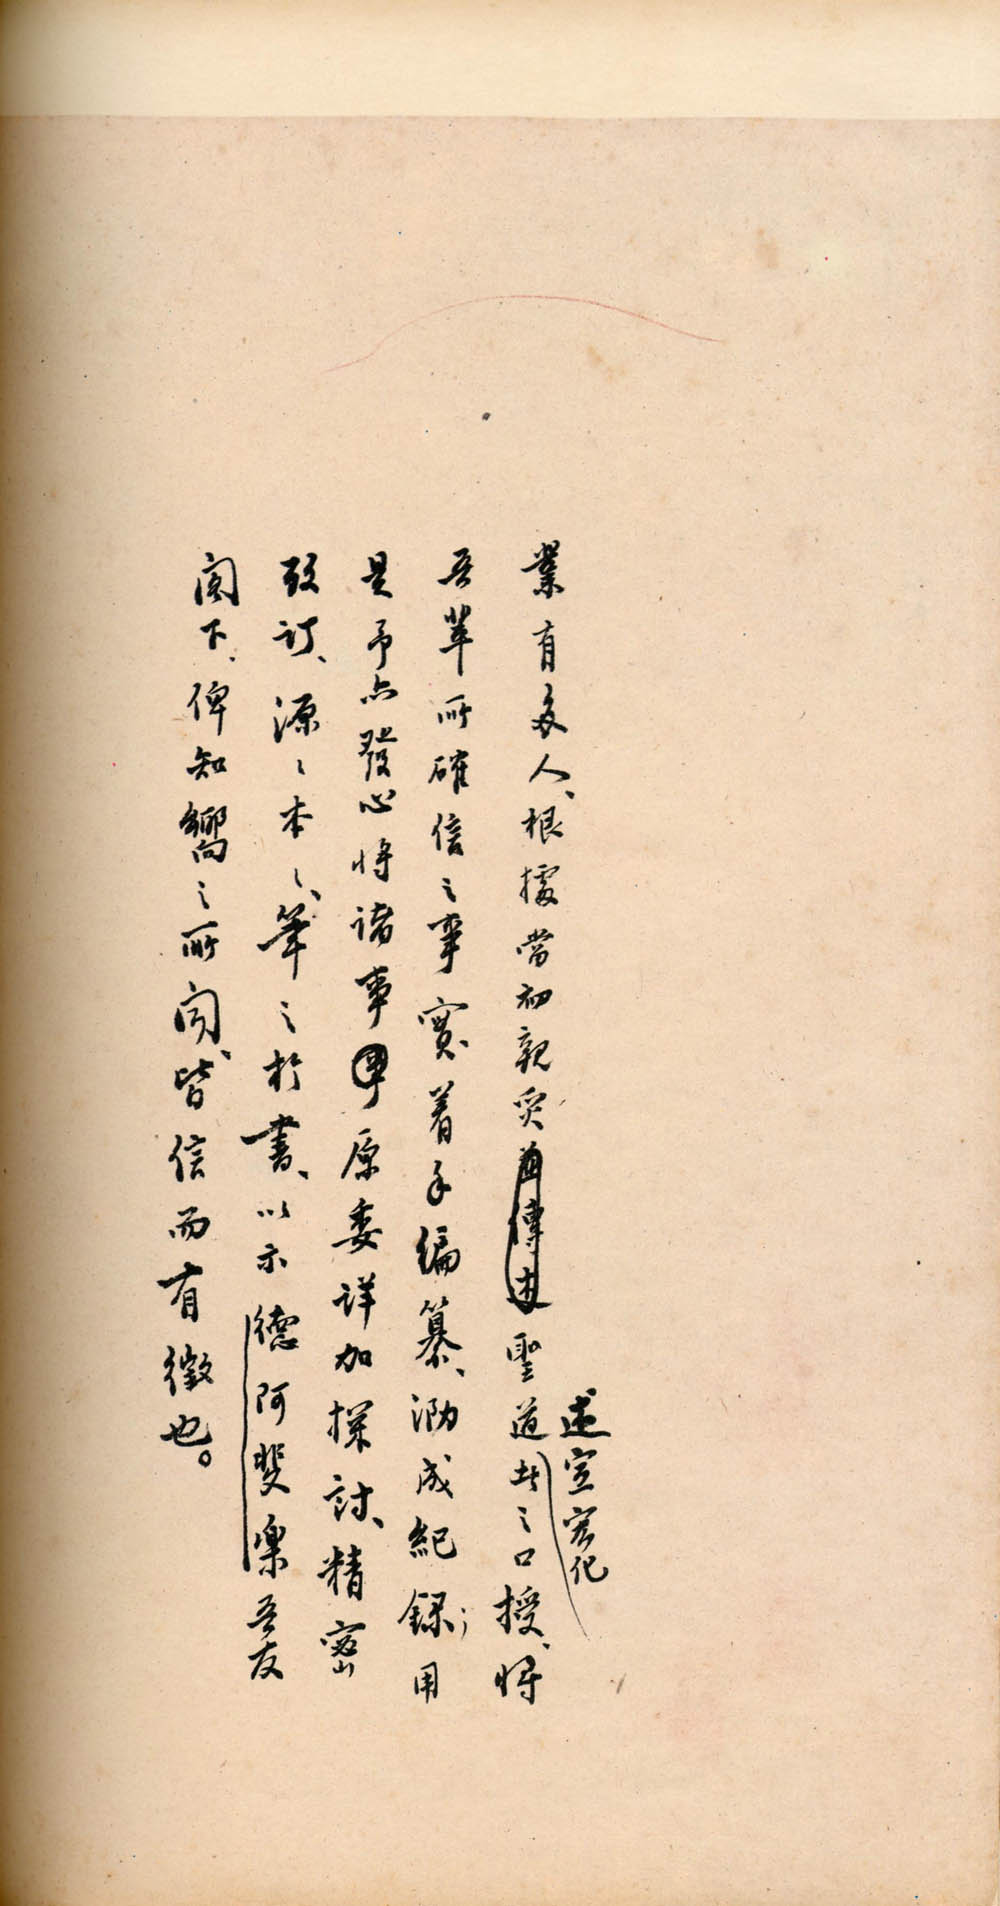 業有多人、根據當初親炙聖道者之口授、將
述宣宏化
吾輩所確信之事實、着手編纂、泐成紀錄；用
是予亦發心將諸事原委詳加探討、精密
攷訂、源源本本、筆之於書、以示德阿斐樂吾友
閣下、俾知嚮之所聞、皆信而有徵也。